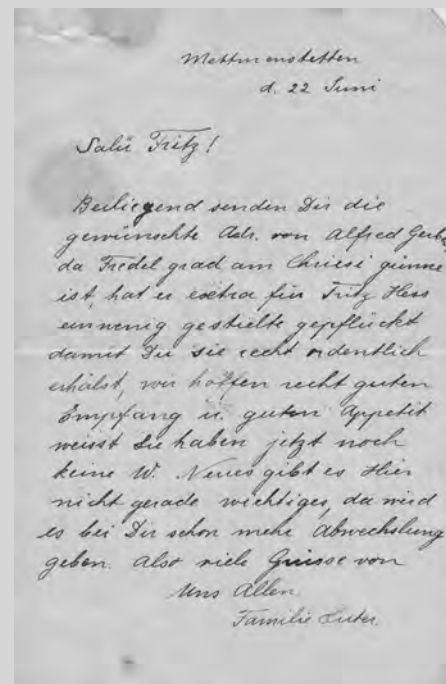 Mettmenstetten
d. 22 Juni
Salü Fritz!
Beiliegend senden Dir die
gewünschte Adr. von Alfred
da Fredel grad am Chriesi günne
ist, hat er extra für Fritz Hess
einwenig gestielte gepflückt
damit Du sie recht ordentlich
erhälst, wir hoffen recht guten
Empfang u. guten Appetit
weisst Sie haben jetzt noch
keine W. Neues gibt es Hier
nicht gerade wichtiges, da wird
es bei Dir schon mehr Abwechslung
geben. Also viele Grüsse von
Uns Allen.
Familie